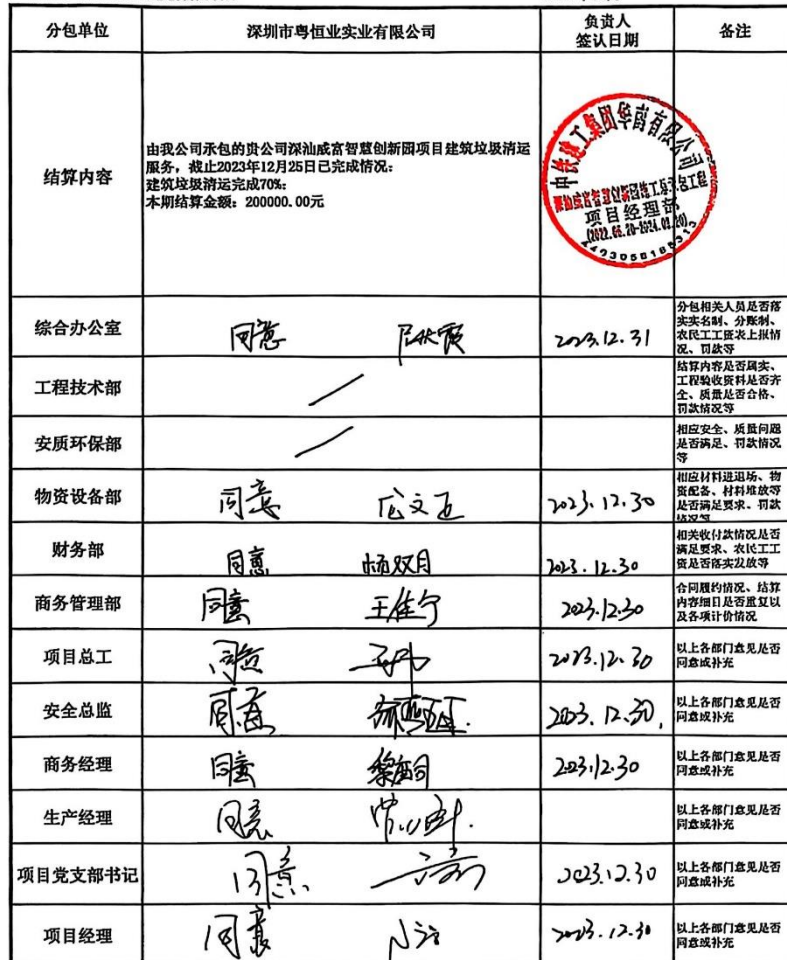 分包单位 深圳市粤恒业实业有限公司 负责人 签认日期 备注
结算内容
由我公司承包的贵公司深汕威富智慧创新园项目建筑垃圾清运
服务，截止2023年12月25日已完成情况：
建筑垃圾清运完成70%：
本期结算金额：200000.00元
中铁建工集团华南有限公司
项目经理部
(2022.05.20-2024.02.20)
综合办公室 同意 2023.12.31
分包相关人员是否落
实实名制、分账制、
农民工工资表上报情
况、罚款等
工程技术部
结算内容是否属实、
工程验收资料是否齐
全、质量是否合格、
罚款情况等
安质环保部
相应安全、质量问题
是否满足、罚款情况
等
物资设备部 同意 2023.12.30
相应材料进退场、物
资配备、材料堆放等
是否满足要求、罚款
情况等
财务部 同意 杨双月 2023.12.30
相关收付款情况是否
满足要求、农民工工
资是否落实发放等
商务管理部 同意 王佳宁 2023.12.30
合同履约情况、结算
内容细目是否重复以
及各项计价情况
项目总工 同意 2023.12.30 以上各部门意见是否
同意或补充
安全总监 同意 2023.12.30. 以上各部门意见是否
同意或补充
商务经理 同意 2023.12.30 以上各部门意见是否
同意或补充
生产经理 同意 以上各部门意见是否
同意或补充
项目党支部书记 同意 2023.12.30 以上各部门意见是否
同意或补充
项目经理 同意 2023.12.30 以上各部门意见是否
同意或补充